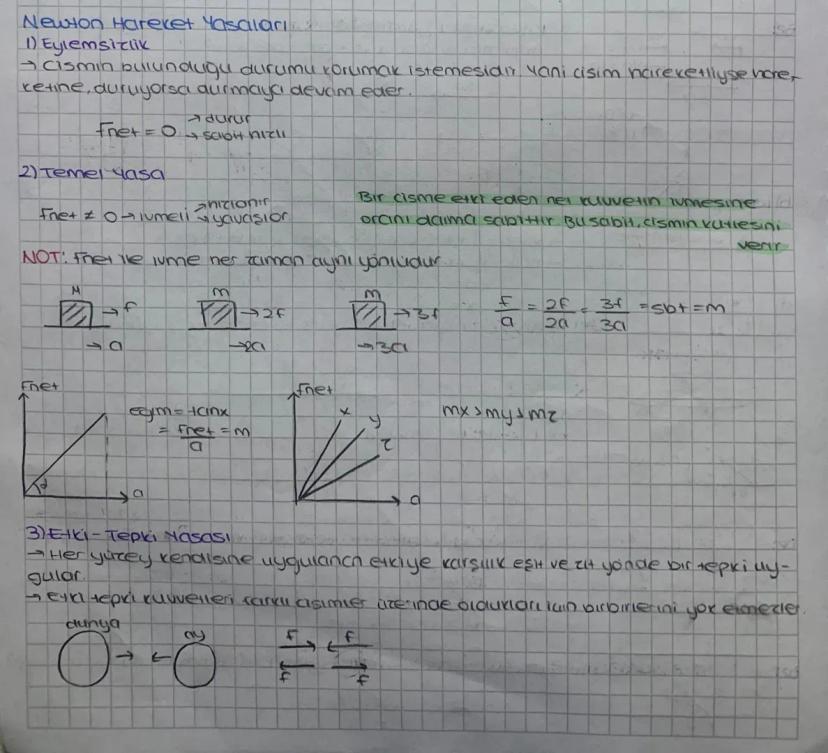 Newton Hareket Yasaları
1) Eylemsizlik
→ Cismin bulunduğu durumu korumak istemesidir. Yani cisim hareketliyse hare-
ketine, duruyorsa durmaya devam eder.
Fnet = 0 → durur
→ sabit hızlı
2) Temel Yasa
Fnet ≠ 0 → ivmeli → hızlanır
→ yavaşlar
Bir cisme etki eden net kuvvetin ivmesine
oranı daima sabittir. Bu sabit, cismin kütlesini
verir
NOT: Fnet ile ivme her zaman aynı yönlüdür
M m m
→ F → 2F → 3F
→ a → 2a → 3a
F/a = 2F/2a = 3F/3a = sbt = m
Fnet Fnet
eğim = tanx
= Fnet/a = m
x y z
mx > my > mz
α a a
3) Etki - Tepki Yasası
→ Her yüzey kendisine uygulanan etkiye karşılık eşit ve zıt yönde bir tepki uy-
gular.
→ etki tepki kuvvetleri farklı cisimler üzerinde oldukları için birbirlerini yok etmezler.
dünya ay
F F
F F